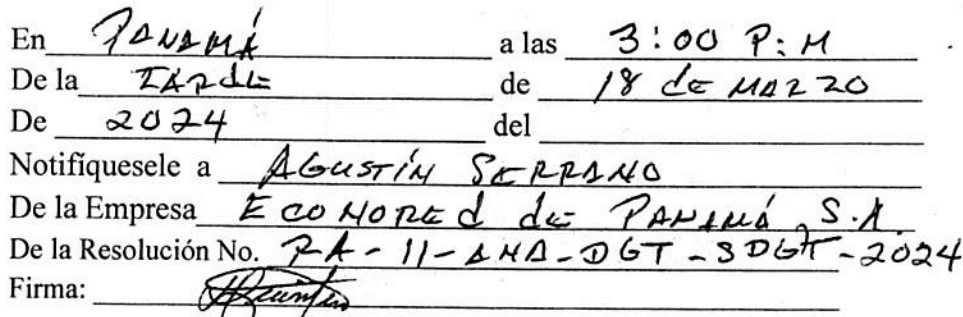 En PANAMÁ a las 3:00 P:M
De la TARDE de 18 de MARZO
De 2024 del
Notifíquesele a AGUSTÍN SERRANO
De la Empresa ECONORED de PANAMÁ, S.A.
De la Resolución No. RA-11-ANA-DGT-SDGT-2024
Firma: